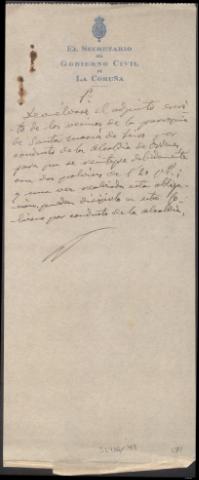 EL SECRETARIO
DEL
GOBIERNO CIVIL
DE
LA CORUÑA
Devuélvase el adjunto escri-
to de los vecinos de la parroquia
de Santa María de por
conducto de la alcaldía de Ordenes,
para que se reintegre debidamente
con dos pólizas de 1'20 pts;
y una vez realizada esta obliga-
ción, pueden dirigirlo a este Go-
bierno por conducto de la alcaldía.